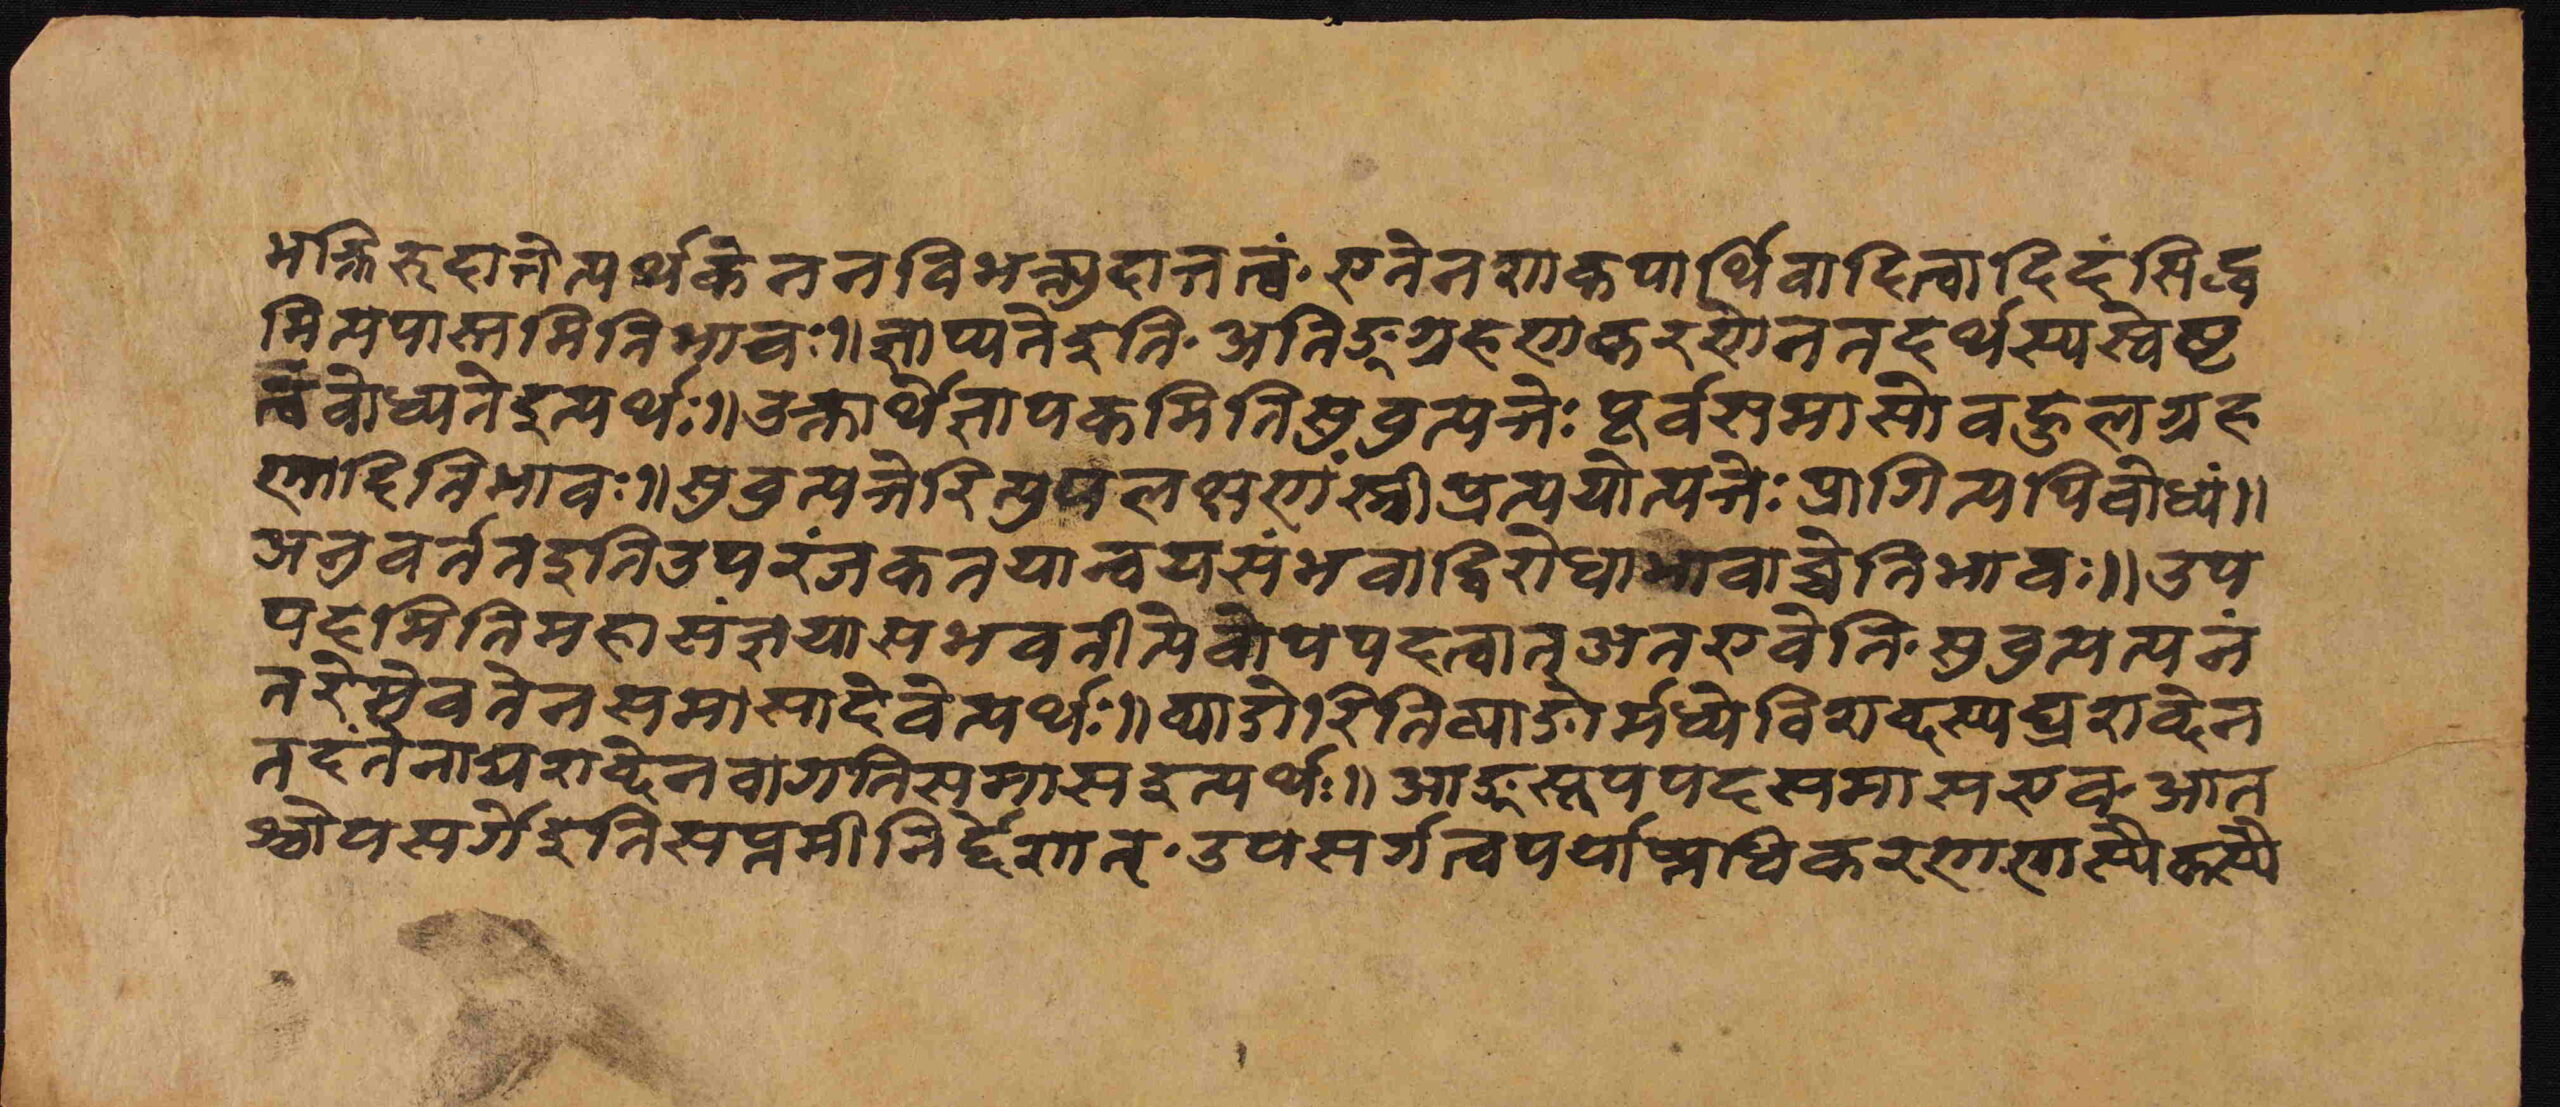 भक्तिरुदात्तेत्यर्थकेननविभक्त्युदात्तत्वं॰एतेनशाकपार्थिवादित्वादिदंसिद्ध
मित्यपास्तमितिभावः॥ज्ञाप्यतेइति॰अतिङ्ग्रहणाकरणेनतदर्थस्यस्वेष्ट
त्वंबोध्यतेइत्यर्थः॥उक्तार्थेज्ञापकमितिसुबुत्पत्तेःपूर्वसमासोबहुलग्रह
णादितिभावः॥सुबुत्पत्तेरित्युपलक्षणंस्त्रीप्रत्ययोत्पत्तेःप्रागित्यपिबोध्यं॥
अनुवर्ततइतिउपरंजकतयान्वयसंभवाद्विरोधाभावाच्चेतिभावः॥उप
पदमितिमहासंज्ञयासभवतीत्येवोपपदत्वात्अतएवेति॰सुबुत्पत्त्यनं
तरेसेवतेनसमासादेवेत्यर्थः॥व्याङोरितिव्याङोर्मध्येविशब्दस्यघ्रशब्देन
तदंतेनाघ्रशब्देनवागतिसमासइत्यर्थः॥आङ्स्तूपपदसमासएव॰आत
श्चोपसर्गेइतिसप्तमीनिर्द्देशात्॰उपसर्गत्वपर्याप्त्यधिकरणस्यैकस्यै